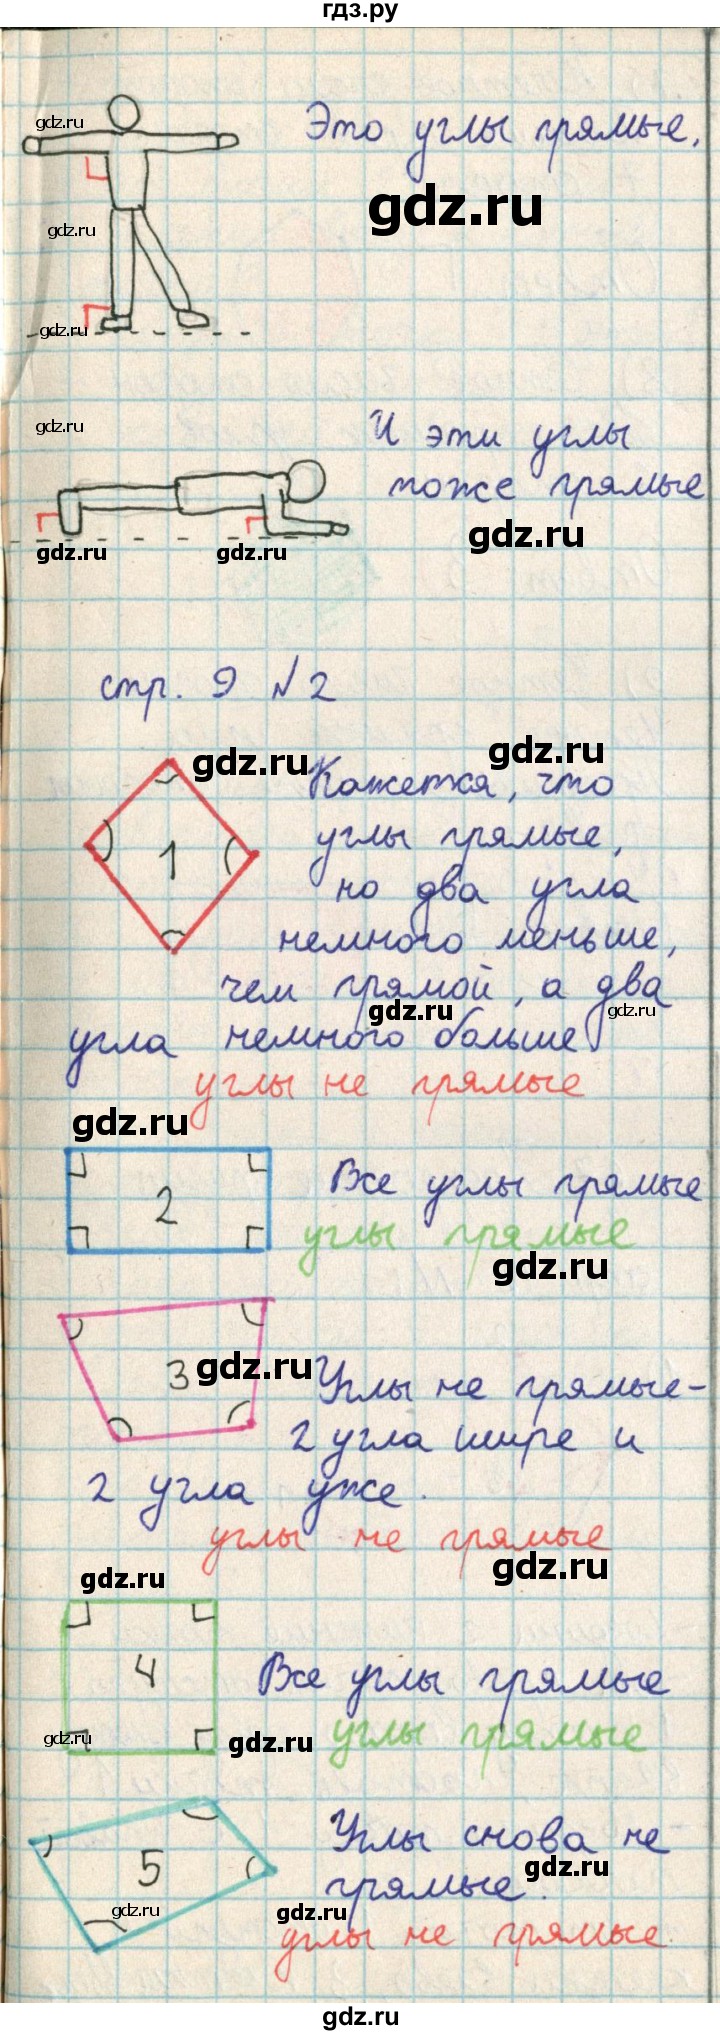 гдз.ру
gdz.ru
Это углы прямые.
gdz.ru
gdz.ru
gdz.ru
gdz.ru
И эти углы
тоже прямые
gdz.ru
gdz.ru
gdz.ru
стр. 9 №2
gdz.ru
gdz.ru
Кажется, что
углы прямые,
1
но два угла
немного меньше,
чем прямой, а два
gdz.ru
gdz.ru
угла немного больше
углы не прямые
gdz.ru
2
Все углы прямые
углы прямые
gdz.ru
3
gdz.ru
Углы не прямые-
2 угла шире и
2 угла уже.
углы не прямые
gdz.ru
gdz.ru
4
Все углы прямые
углы прямые
gdz.ru
gdz.ru
Углы снова не
5
gdz.ru
прямые.
gdz.ru
gdz.ru
углы не прямые.
gdz.ru